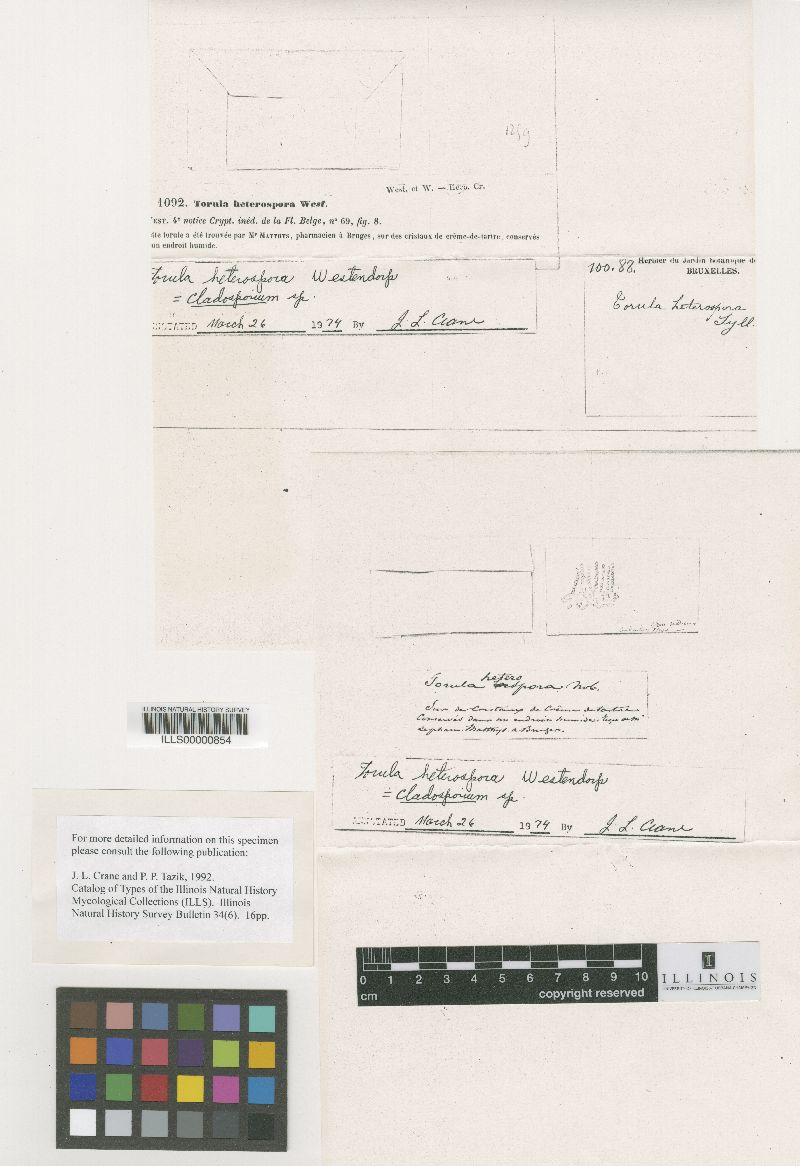 1259
West. et W. — Herb. Cr.
1092. Torula heterospora West.
EST. 4e notice Crypt. inéd. de la Fl. Belge, n° 69, fig. 8.
tte torule a été trouvée par Mr MATTHYS, pharmacien à Bruges, sur des cristaux de crème-de-tartre, conservés
un endroit humide.
Torula heterospora Westendorp
= Cladosporium sp.
March 26 1974 By J. L. Crane
100.88.
Herbier du Jardin botanique de
BRUXELLES.
Torula heterospora
Syll.
Torula hetero spora Nob.
Sur des Cristaux de Crême de tartre
Conservés dans un endroit humide.
Matthys à Bruges.
Torula heterospora Westendorp
= Cladosporium sp.
ANNOTATED March 26 1974 By J. L. Crane
ILLINOIS NATURAL HISTORY SURVEY
ILLS00000854
For more detailed information on this specimen
please consult the following publication:
J. L. Crane and P. P. Tazik, 1992.
Catalog of Types of the Illinois Natural History
Mycological Collections (ILLS). Illinois
Natural History Survey Bulletin 34(6). 16pp.
0 1 2 3 4 5 6 7 8 9 10
cm
copyright reserved
I
ILLINOIS
UNIVERSITY OF ILLINOIS AT URBANA-CHAMPAIGN